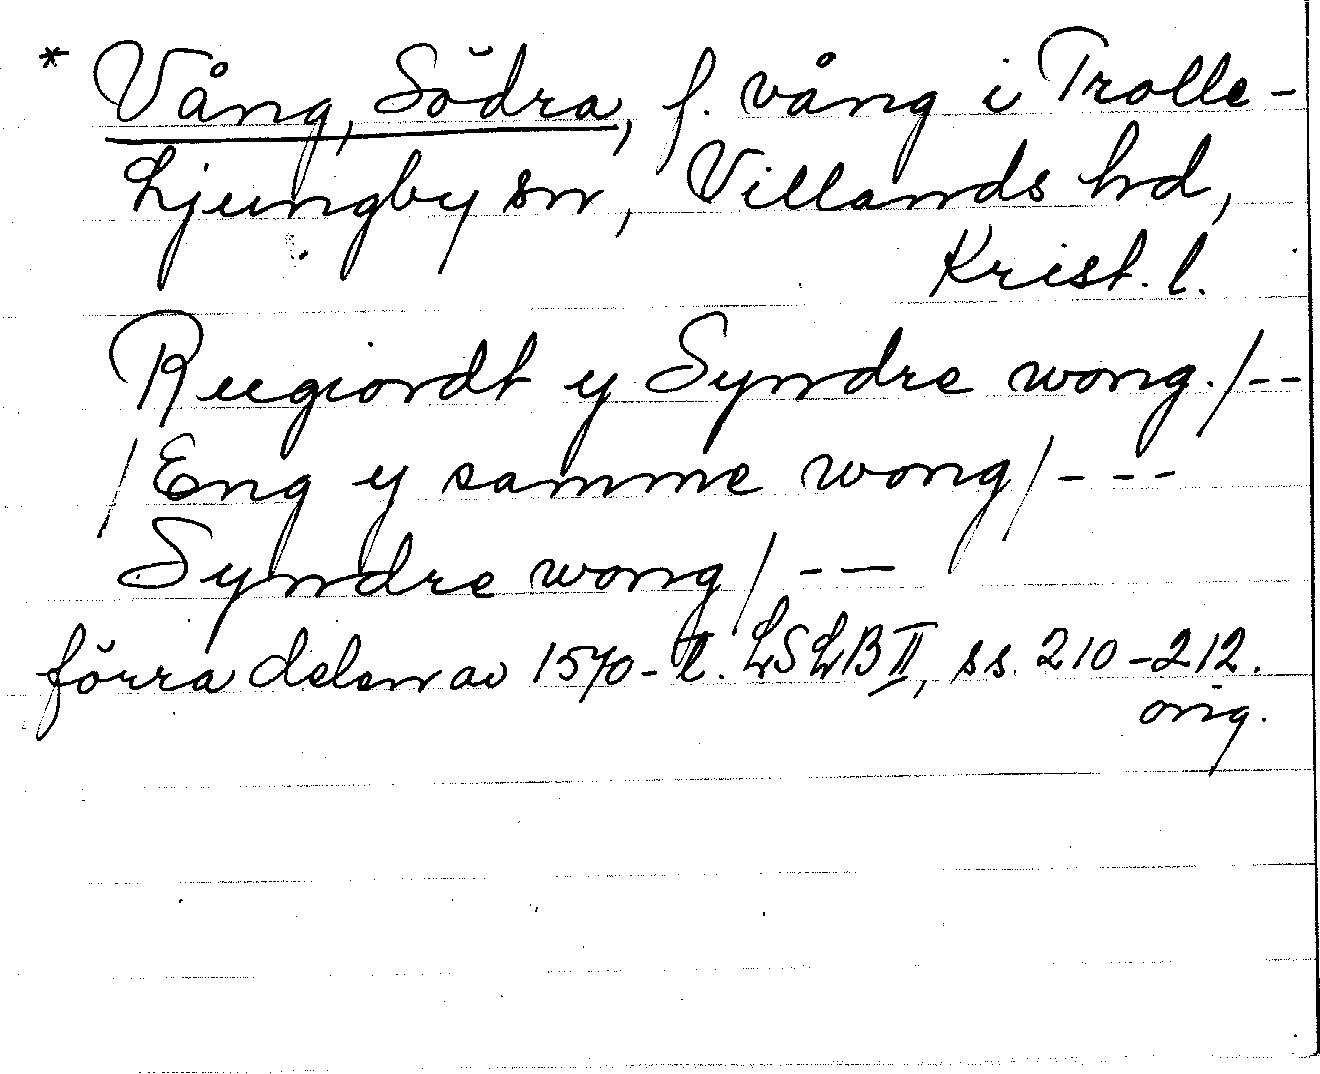 * Vång, Södra, f. vång i Trolle-
Ljungby sn, Villands hd,
Krist. l.
Rugiordt y Syndre wong. / --
/ Eng y samme wong / ---
Syndre wong / --
förra delen av 1570-t. LSLB II, ss. 210-212.
orig.